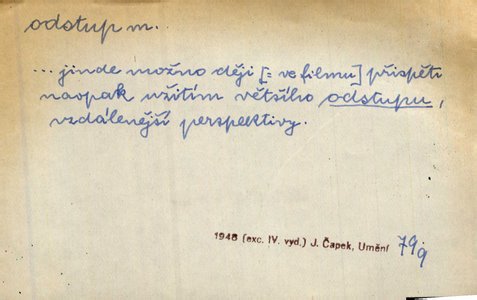 odstup m.
... jinde možno ději [= ve filmu] přispěti
naopak užitím většího odstupu,
vzdálenější perspektivy.
1948 (exc. IV. vyd.) J. Čapek, Umění 79